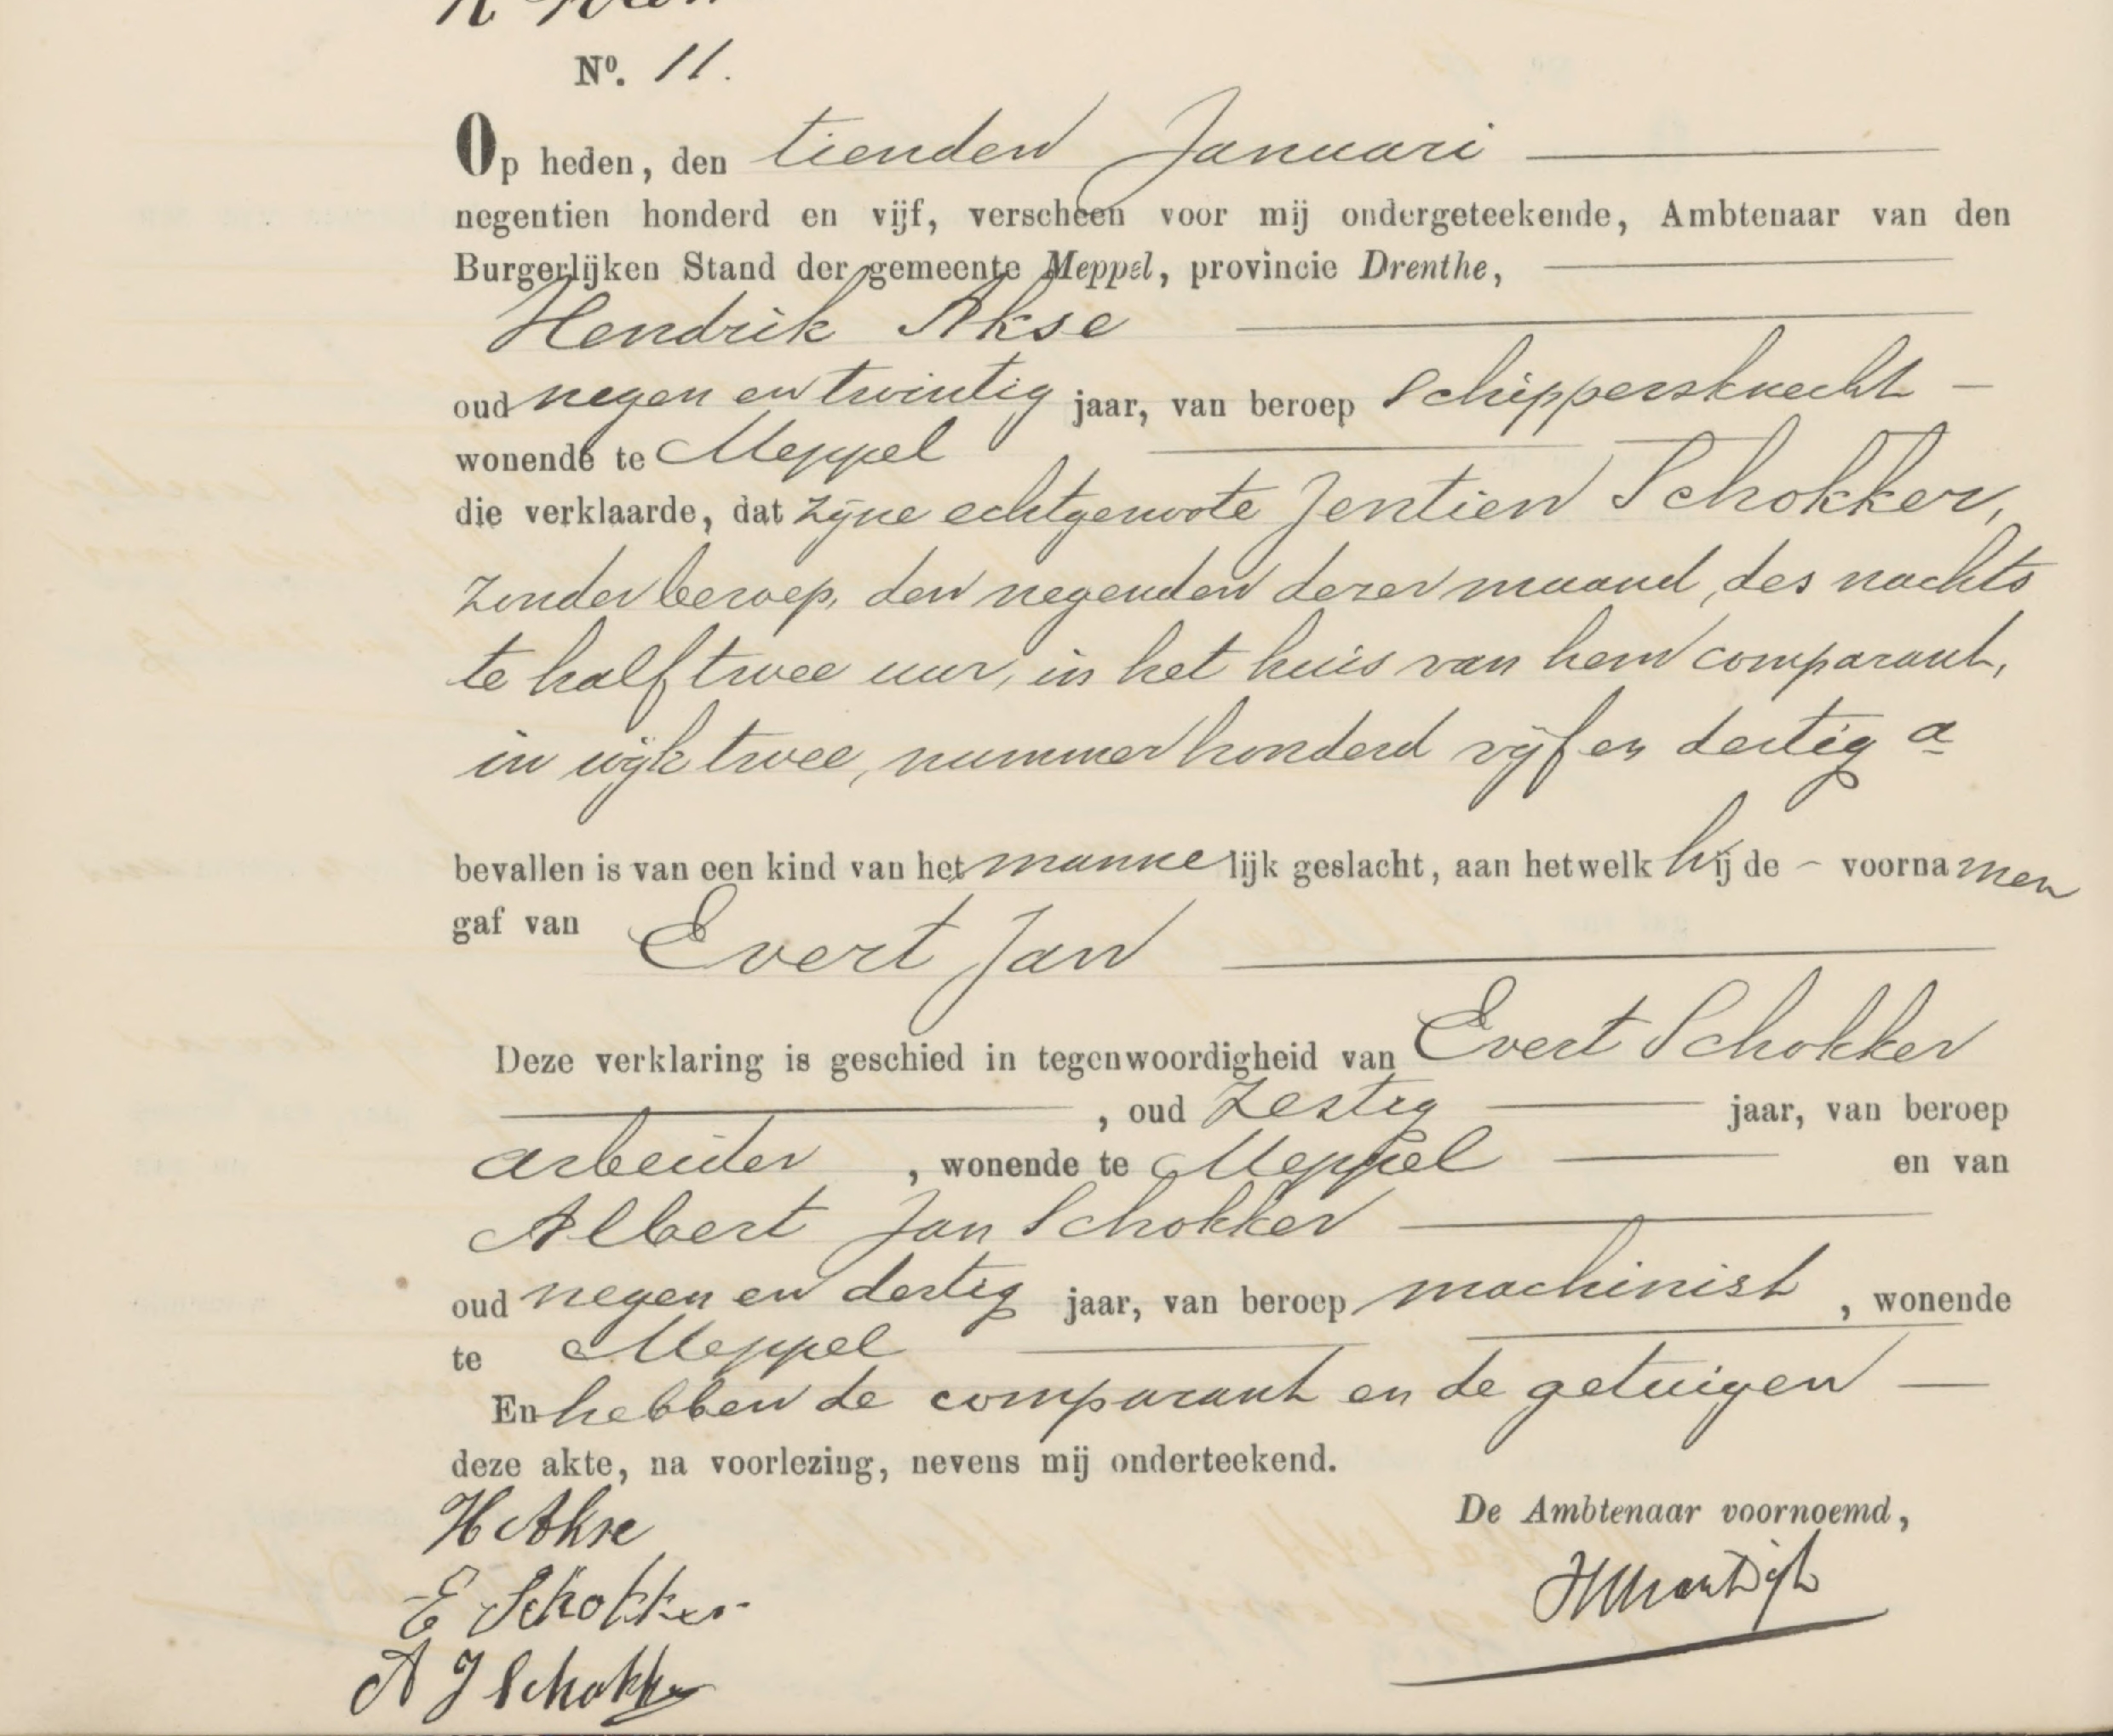 No. 11.
Op heden, den tienden Januari
negentien honderd en vijf, verscheen voor mij ondergeteekende, Ambtenaar van den
Burgerlijken Stand der gemeente Meppel, provincie Drenthe,
Hendrik Akse
oud negen en twintig jaar, van beroep Schippersknecht
wonende te Meppel
die verklaarde, dat zijne echtgenoote Jentien Schokker,
zonder beroep, den negenden dezer maand, des nachts
te half twee uur, in het huis van hem comparant,
in wijk twee, nummer honderd vijf en dertig a
bevallen is van een kind van het mannelijk geslacht, aan hetwelk hij de - voornamen
gaf van Evert Jan
Deze verklaring is geschied in tegenwoordigheid van Evert Schokker
, oud zestig jaar, van beroep
arbeider , wonende te Meppel en van
Albert Jan Schokker
oud negen en dertig jaar, van beroep machinist , wonende
te Meppel
En hebben de comparant en de getuigen
deze akte, na voorlezing, nevens mij onderteekend.
H Akse
De Ambtenaar voornoemd,
E Schokker
A J Schokker